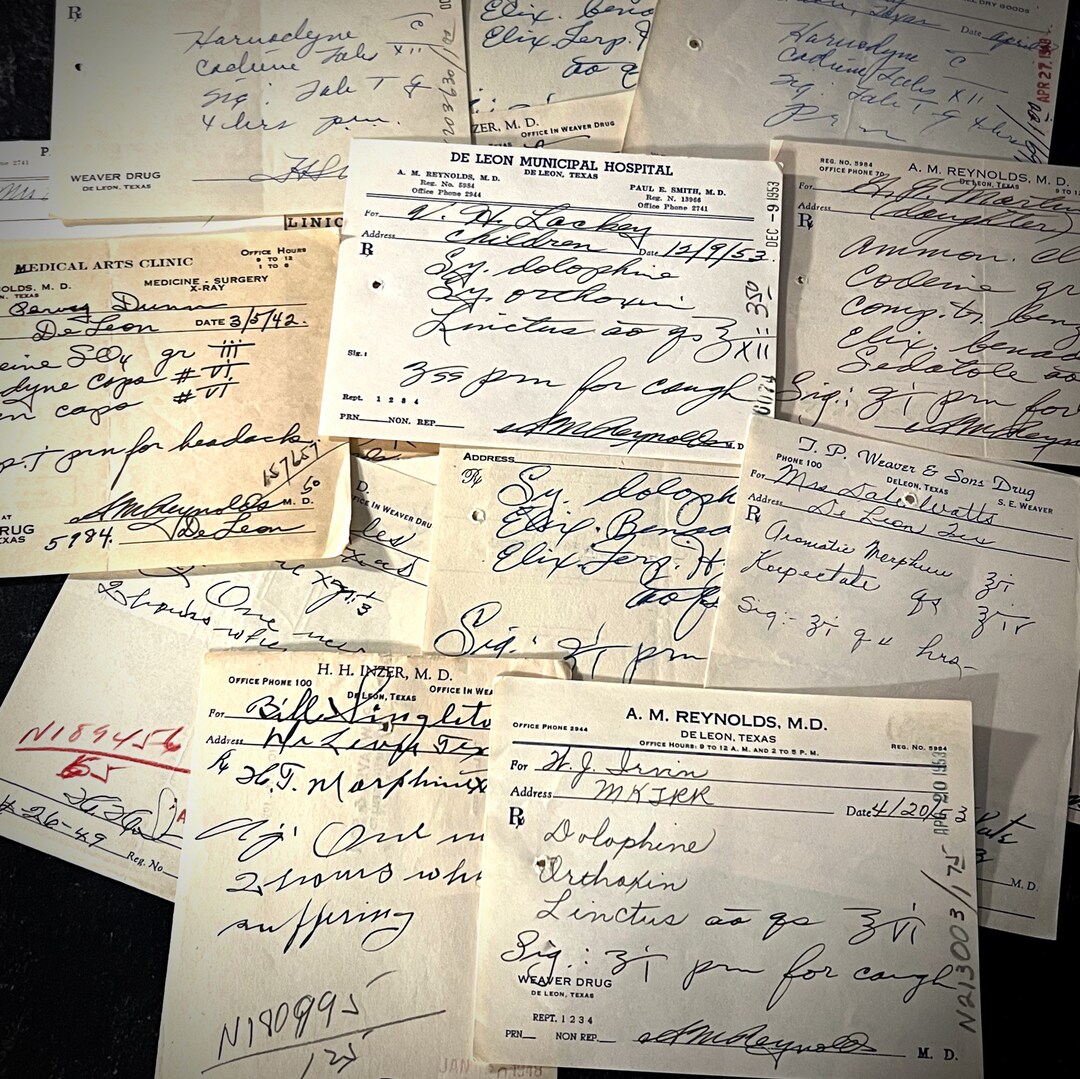 ℞
Harmodyne c̄
Codeine Tabs XII
Sig: Tab T q
4 hrs prn.
WEAVER DRUG
DE LEON, TEXAS
203630/1.00
Elix. Bena
Elix. Terp. H
āā q
ZER, M. D.
OFFICE IN WEAVER DRUG
DRY GOODS
Texas Date April
Harmodyne c̄
Codeine Tabs XII
Sig: Tab T q 4 hrs
prn
APR 27
2741
LINIC
DE LEON MUNICIPAL HOSPITAL
DE LEON, TEXAS
A. M. REYNOLDS, M. D.
Reg. No. 5984
Office Phone 2944
PAUL E. SMITH, M. D.
Reg. N. 13966
Office Phone 2741
For V. H. Lackey
Address Children Date 12/9/53.
℞
Sy. dolophine
Sy. orthoxin
Linctus āā qs ℥ XII
Sig:
ʒss prn for cough
Rept. 1 2 3 4
PRN NON. REP.
AM Reynolds M. D.
DEC -9 1953
350
REG. NO. 5984
OFFICE PHONE 70
A. M. REYNOLDS, M. D.
DE LEON, TEXAS
For
Address (daughter)
℞
Ammon. Cl
Codeine gr
Comp. tr. Benz
Elix. Benad
Sedatole āā
Sig: ʒi prn for
AM Reyn
MEDICAL ARTS CLINIC
OFFICE HOURS
9 TO 12
1 TO 6
OLDS, M. D.
N, TEXAS
MEDICINE - SURGERY
X-RAY
Dunn
De Leon DATE 3/5/42.
eine SO4 gr iii
dyne caps # VI
n caps # VI
p. i prn for headache
157657
50
AM Reynolds M. D.
RUG
EXAS
5984. De Leon
ADDRESS
℞
Sy. doloph
Elix. Benad
Elix. Terp. H.
āā
Sig: ʒi prn
T. P. Weaver & Sons Drug
PHONE 100
DELEON, TEXAS
S. E. WEAVER
For Mrs Watts
Address De Leon Tex
℞
Aromatic Morphine ʒi
Kaopectate qs
Sig:- ʒi q 4 hrs-
D.
FICE IN WEAVER DRU
One
2 hours whe
N189456
65
26-49
Reg. No.
M. D.
H. H. INZER, M. D.
OFFICE PHONE 100
DE LEON, TEXAS
OFFICE IN WEA
For Bill Singleto
Address De Leon Tex
℞ H. T. Morphine
Sig One
2 hours whe
suffering
N180995
125
OFFICE PHONE 2944
A. M. REYNOLDS, M.D.
DE LEON, TEXAS
OFFICE HOURS: 9 TO 12 A. M. AND 2 TO 5 P. M.
REG. NO. 5984
For W. J. Irvin
Address MKTRR Date 4/20/53
℞
Dolophine
Orthoxin
Linctus āā qs ℥ VI
Sig: ʒi prn for cough
WEAVER DRUG
DE LEON, TEXAS
REPT. 1 2 3 4
PRN NON REP.
AM Reynolds M. D.
APR 20 1953
N213003/175